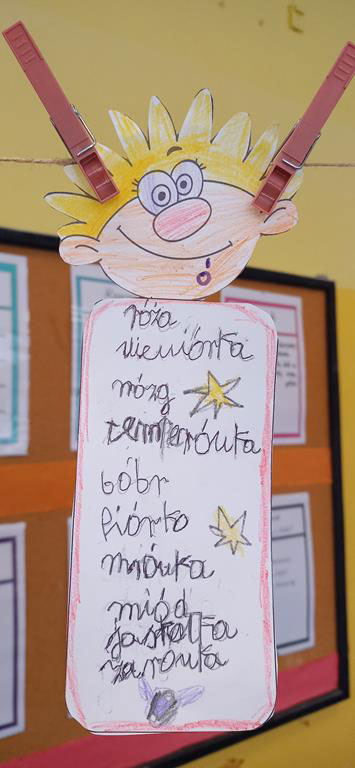 róża
wiewiórka
mózg
temperówka
bóbr
piórko
mrówka
miód
jaskółka
żarówka